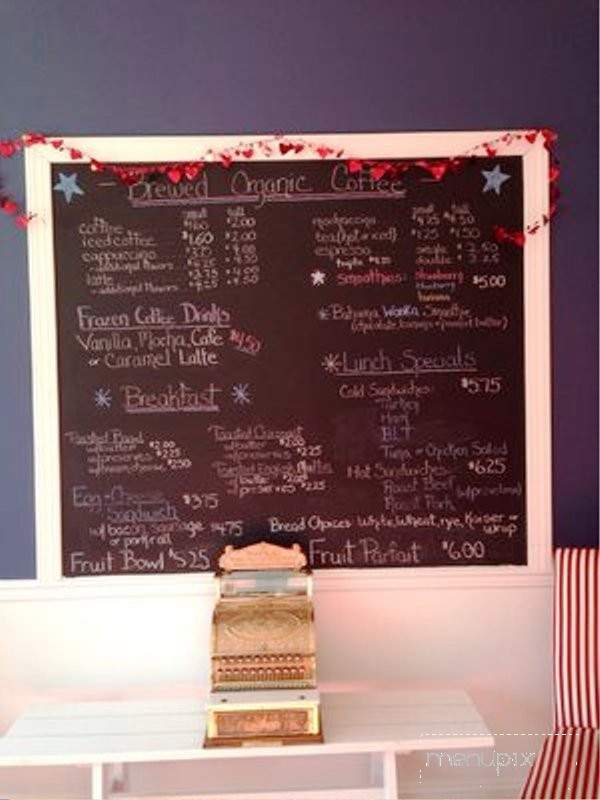 Brewed Organic Coffee
small tall
coffee $1.60 $2.00
iced coffee $1.60 $2.00
cappuccino
- additional flavors
latte $3.75
- additional flavors
Frozen Coffee Drinks
Vanilla, Mocha, Cafe $4.50
or Caramel Latte
Breakfast
Toasted Bread
w/butter $2.00
w/preserves $2.25
w/cream cheese $2.50
Toasted Croissant
w/butter $2.00
w/preserves $2.25
Toasted English Muffin
w/butter $2.00
w/preserves $2.25
Egg + Cheese $3.75
Sandwich
w/bacon, sausage $4.75
or pork roll
Fruit Bowl $5.25
mochaccino
tea (hot or iced) $1.25 $1.50
espresso single $2.50
double $3.25
smoothies: strawberry $5.00
blueberry
banana
Bahama Wonka Smoothie
(chocolate, banana + peanut butter)
Lunch Specials
Cold Sandwiches: $5.75
Turkey
Ham
BLT
Tuna or Chicken Salad
Hot Sandwiches: $6.25
Roast Beef
Roast Pork (w/provolone)
Bread Choices White, Wheat, rye, Kaiser or
wrap
Fruit Parfait $6.00
menupix